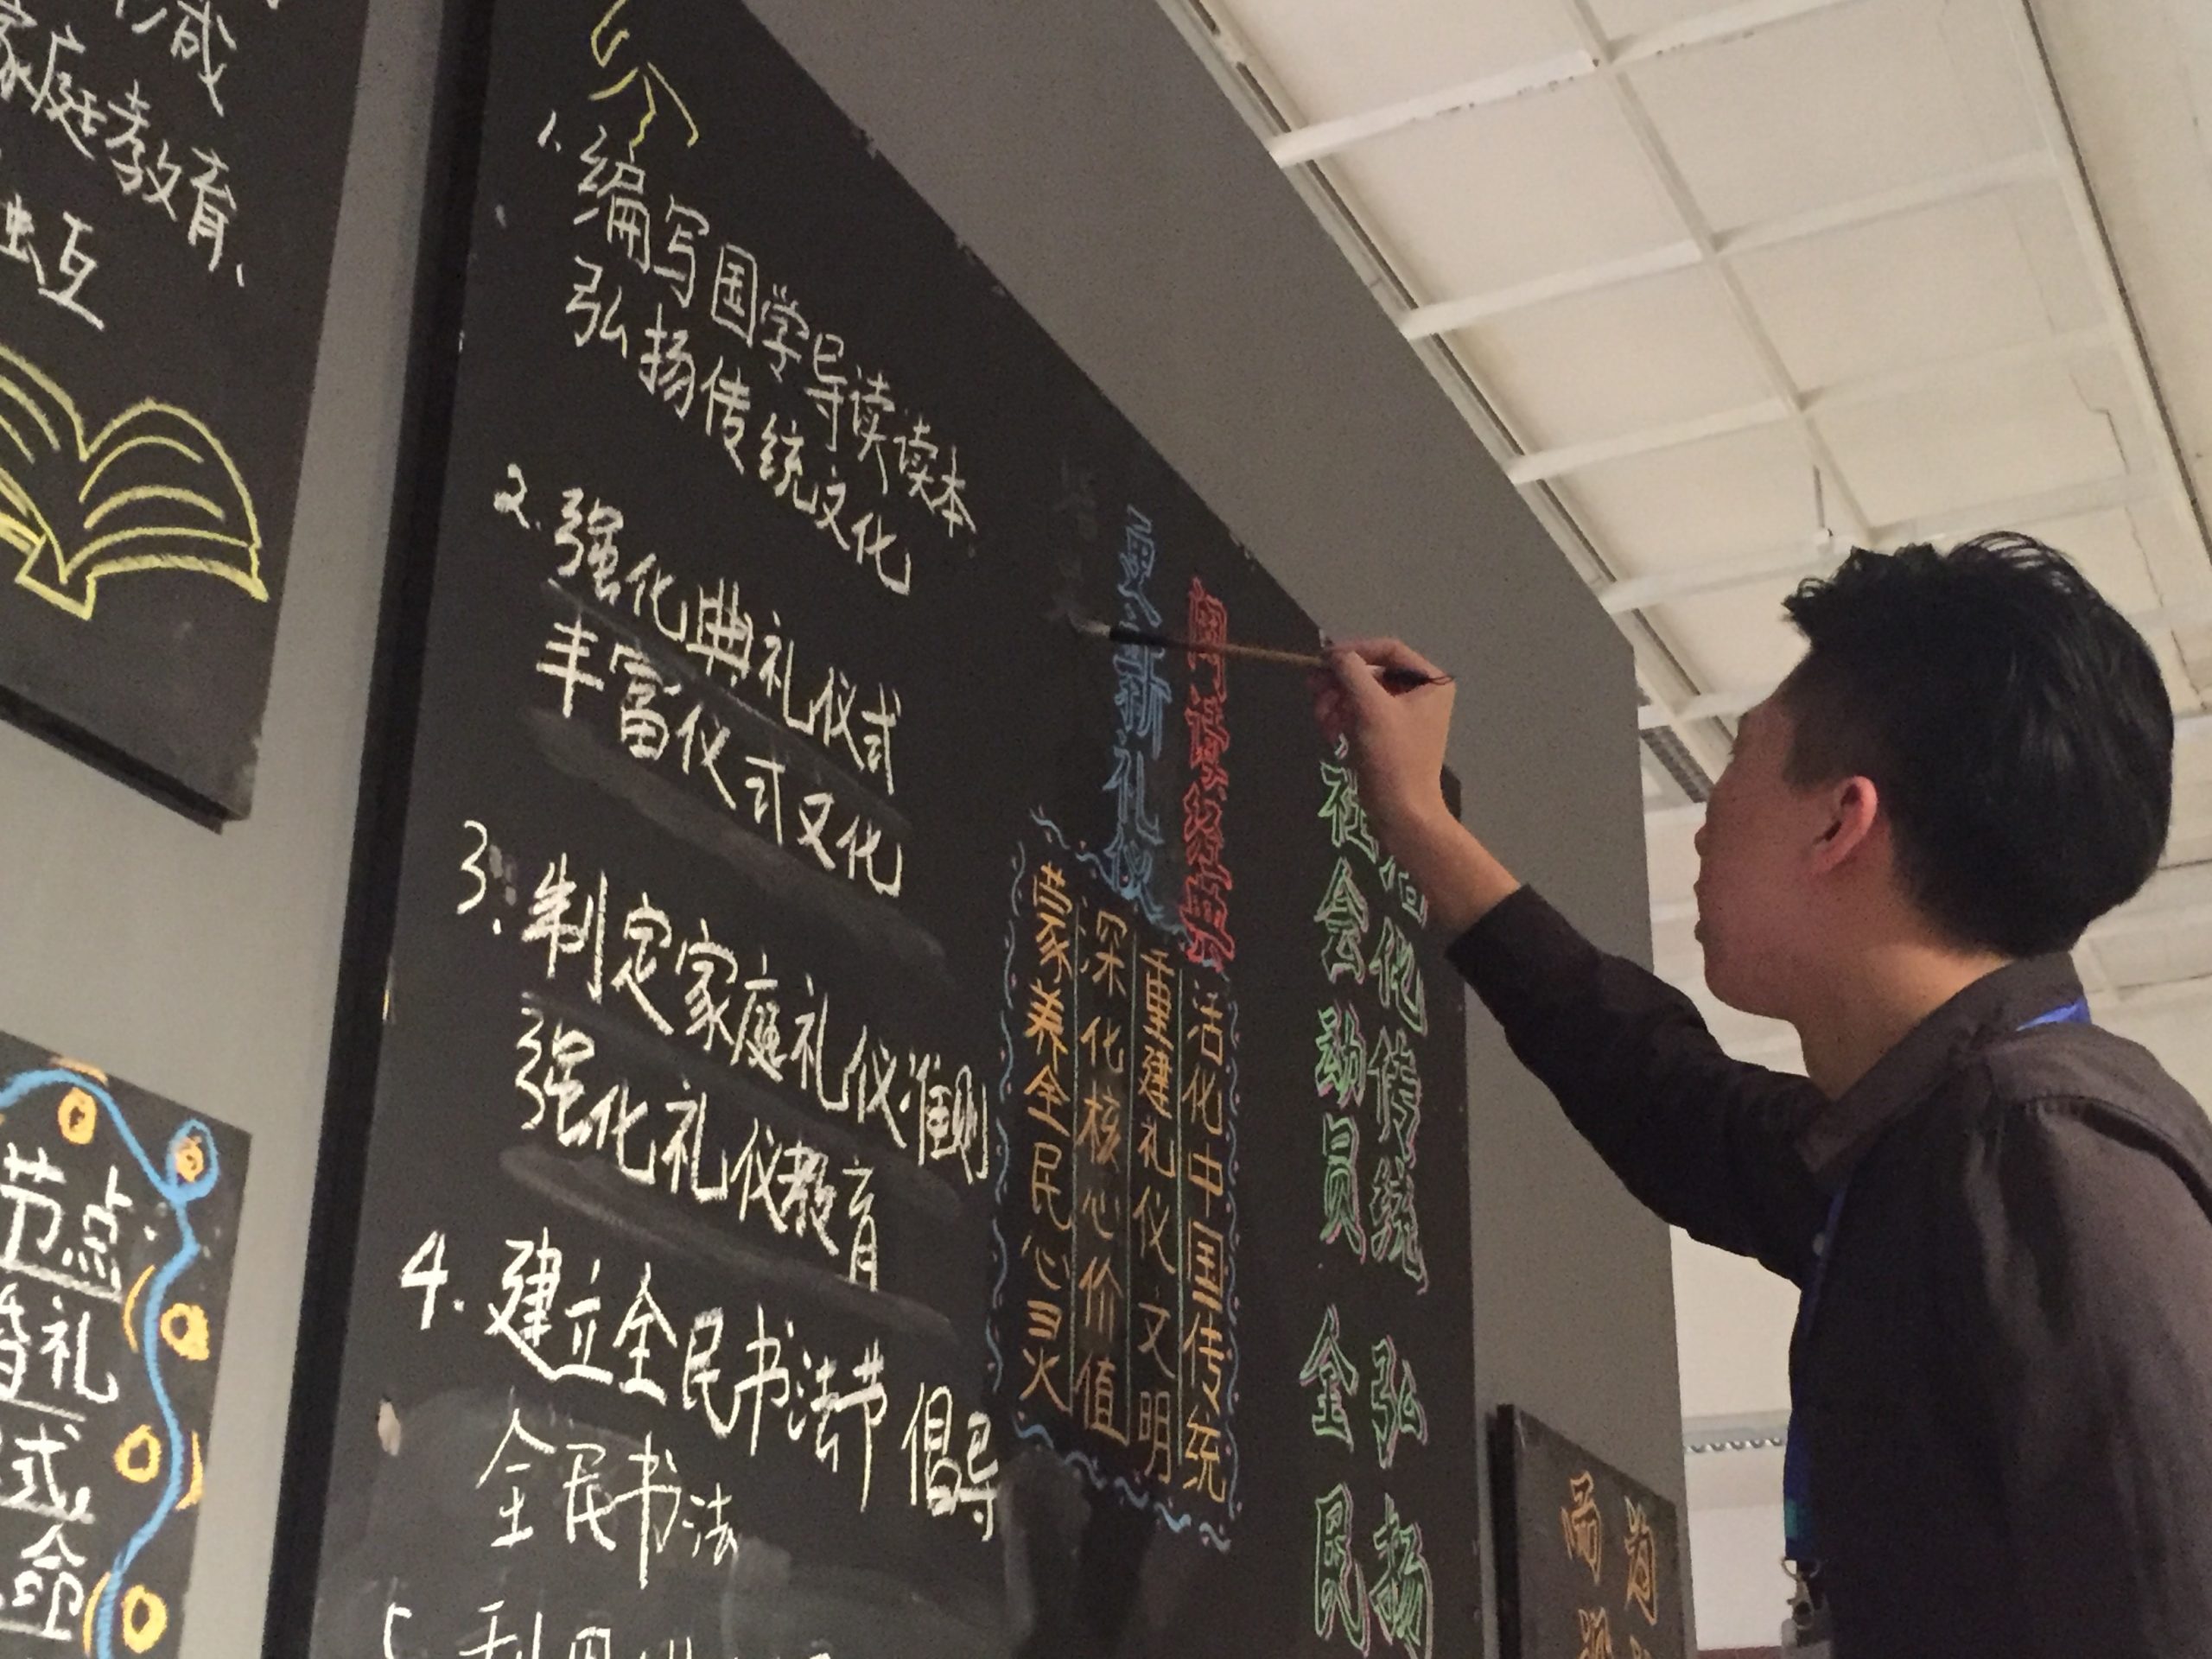 减
家庭教育、
互
节点
婚礼
式
命
1. 编写国学导读读本
弘扬传统文化
2. 强化典礼仪式
丰富仪式文化
3. 制定家庭礼仪准则
强化礼仪教育
4. 建立全民书法节 倡导
全民书法
更新礼仪
阅读经典
活化中国传统
重建礼仪文明
深化核心价值
蒙养全民心灵
活化传统 弘扬
社会动员 全民